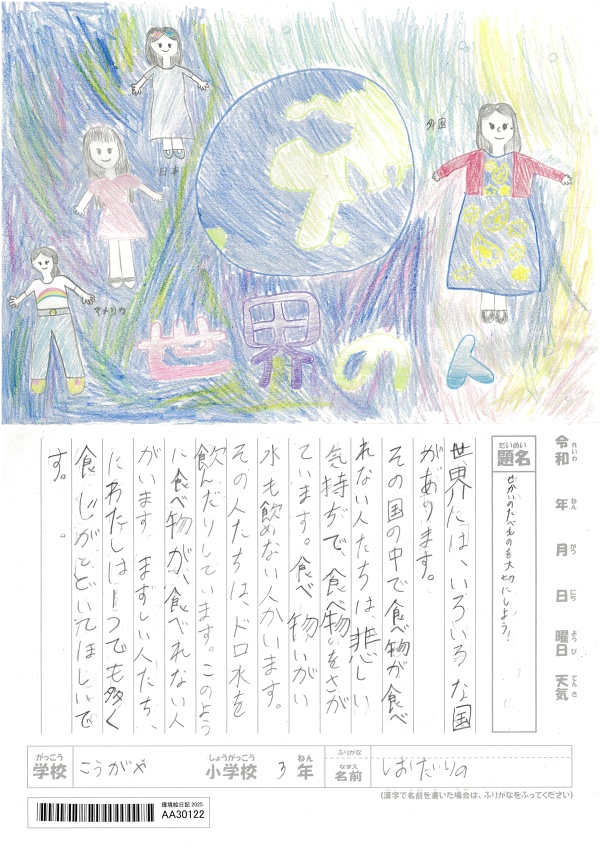 外国
日本
アメリカ
世界の人
令和 れいわ
年 ねん
月 がつ
日 にち
曜日 ようび
天気 てんき
だいめい
題名
せかいのたべものを大切にしよう!
世界には、いろいろな国
があります。
その国の中で食べ物が食べ
れない人たちは、悲しい
気持ちで、食べ物をさが
ています。食べ物いがい
水も飲めない人がいます。
その人たちは、ドロ水を
飲んだりしています。このよう
に食べ物が、食べれない人
がいます。まずしい人たち、
にわたしは1つでも多く
食じがとどいてほしいで
す。
がっこう
学校
こうがや
しょうがっこう
小学校
3
ねん
年
ふりがな
なまえ
名前
しおたりの
(漢字で名前を書いた場合は、ふりがなをふってください)
環境絵日記 2025
AA30122